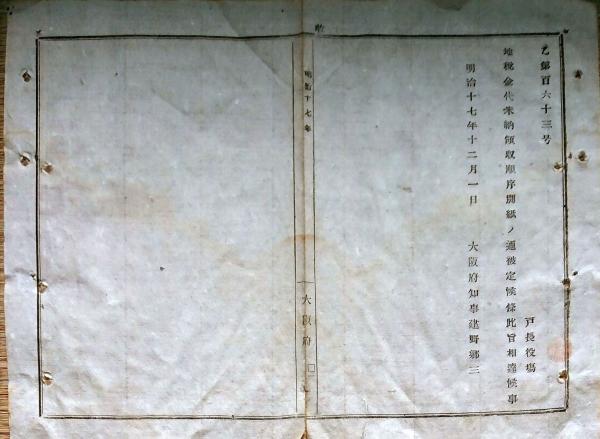 乙第百六十三号
戸長役場
地税金代米納領収順序別紙ノ通被定候条此旨相達候事
明治十七年十二月一日　大阪府知事建野郷三
明治十七年
大阪府